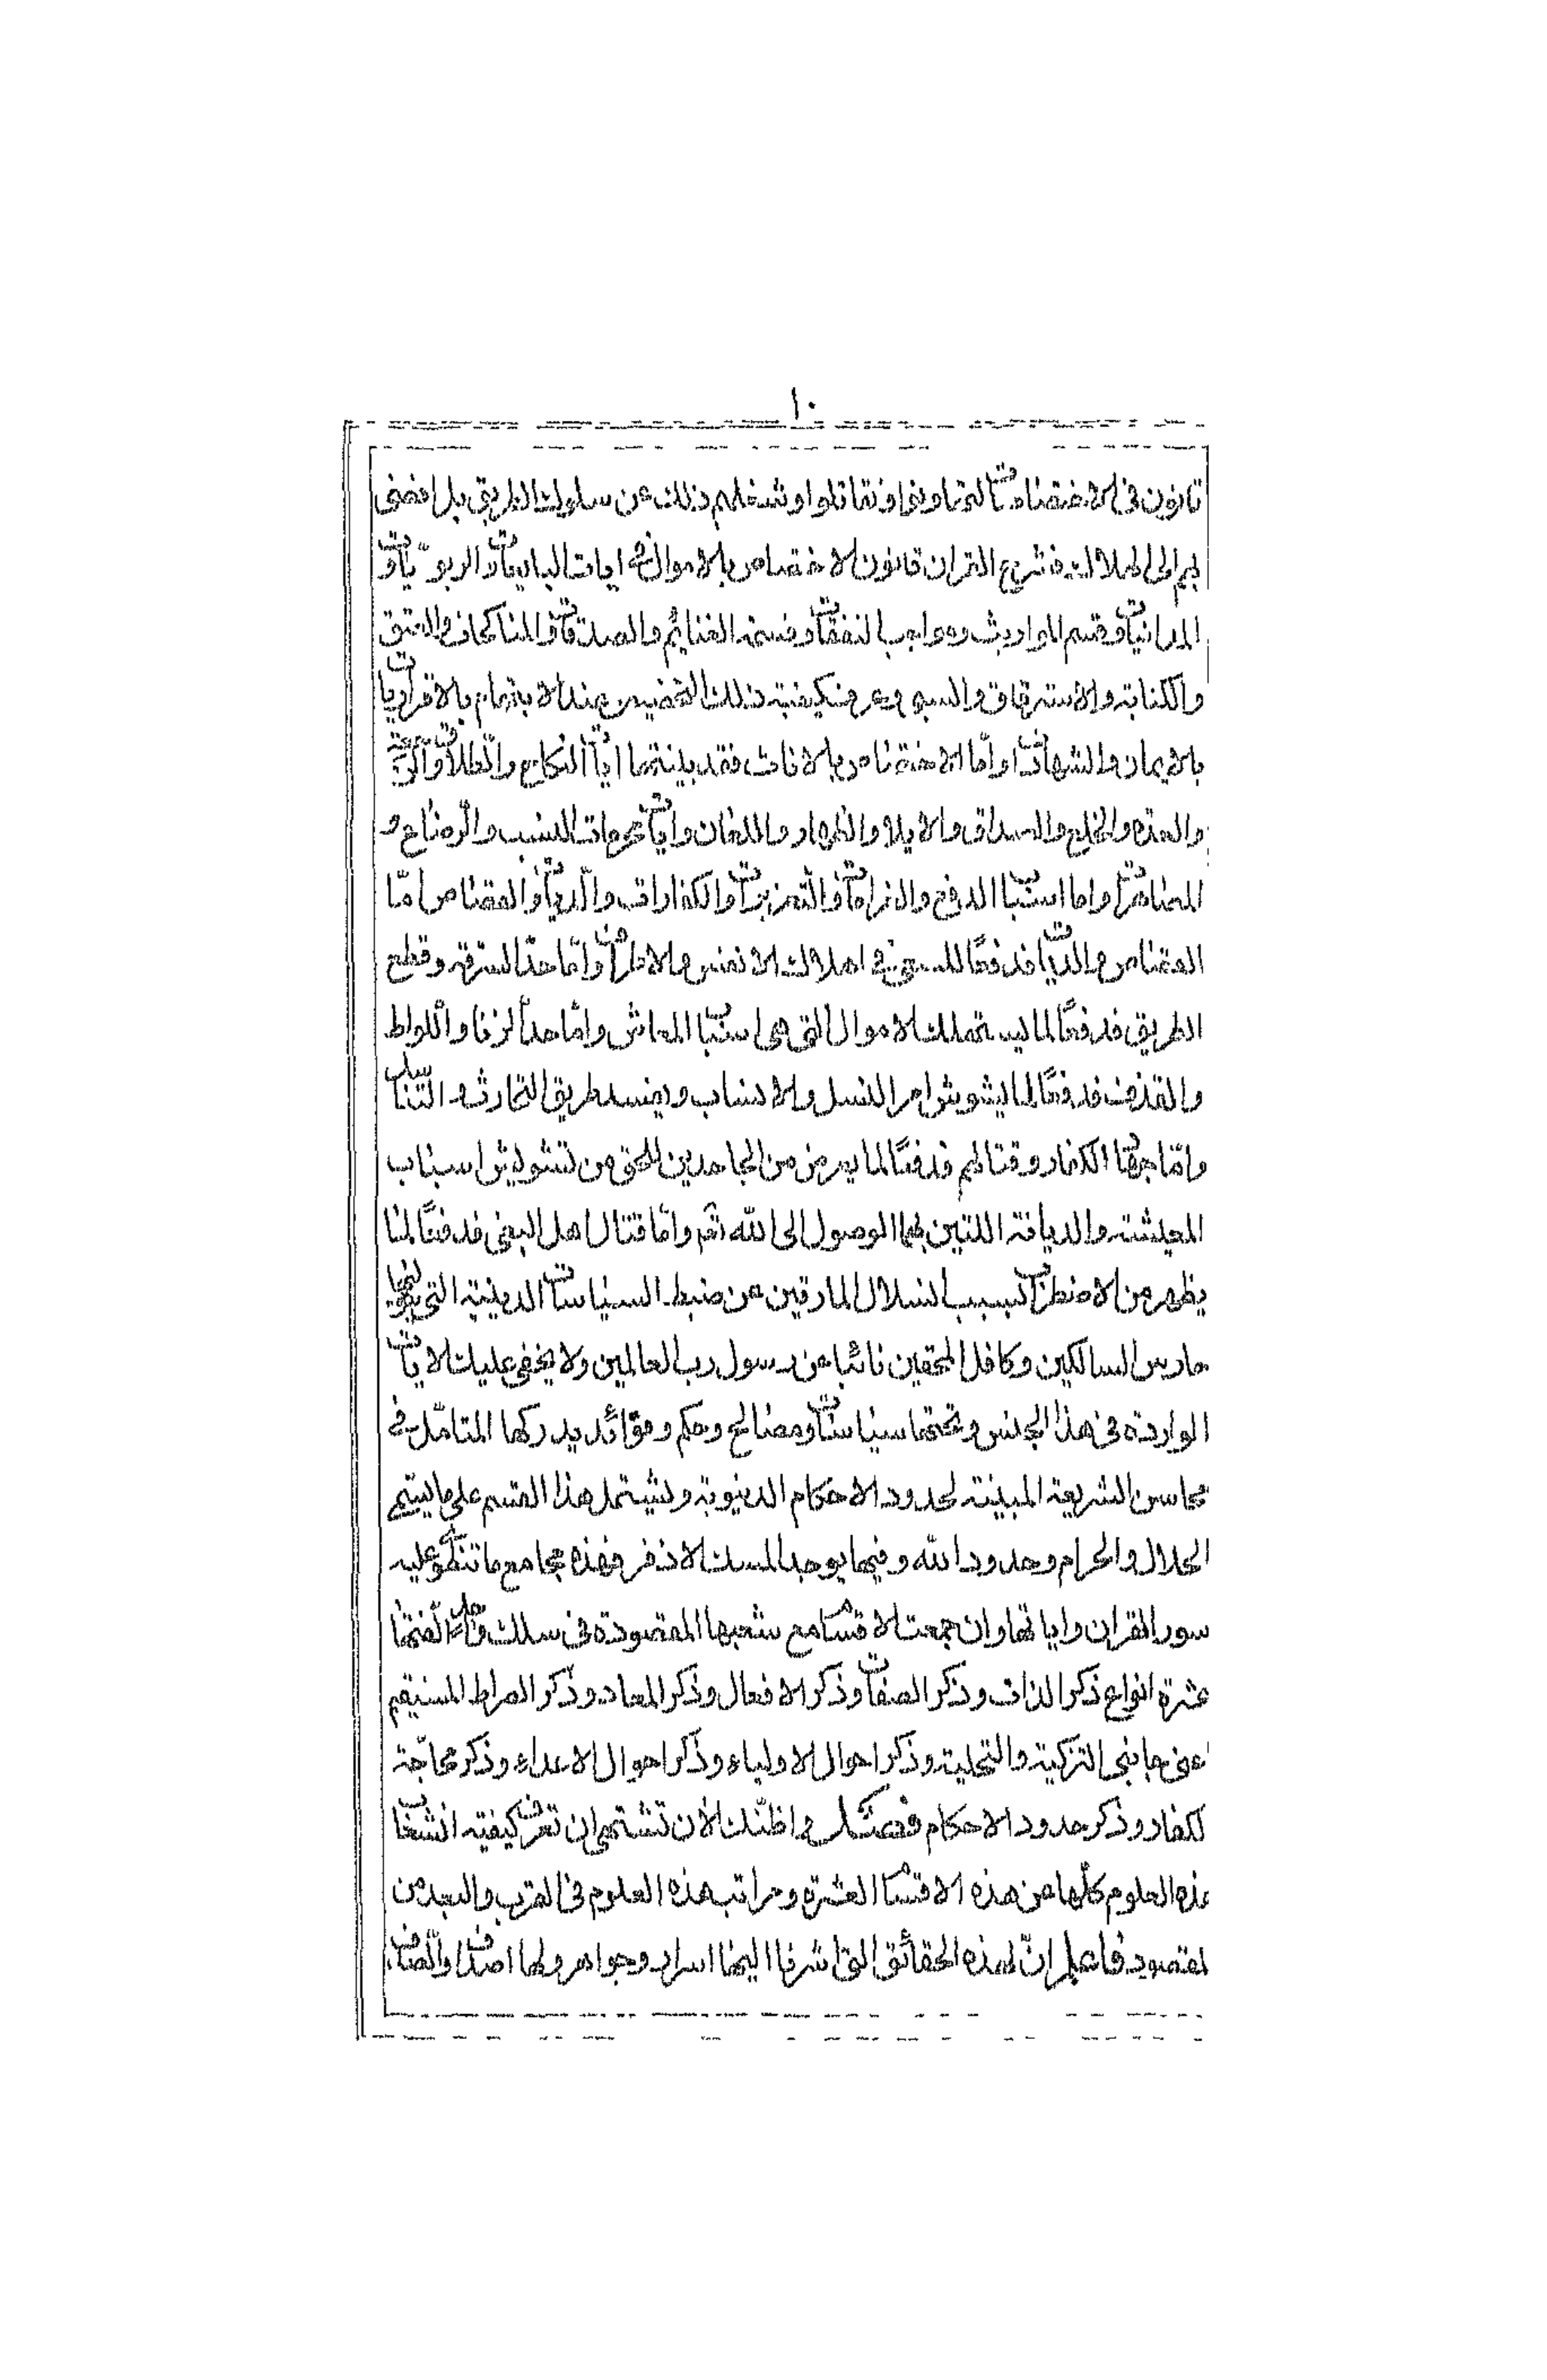 ١٠
قانون في الاختصاصات لتهاوشوا وتقاتلوا وشغلهم ذلك عن سلوك الطريق بل افضى
بهم الى الهلاك فشرح القران قانون الاختصاص بالاموال في ايات المبايعات والربويات و
المداينات وقسم المواريث ومواجب النفقات وقسمة الغنايم والصدقات والمناكحات والعتق
والكتابة والاسترقاق والسبى وعرف كيفية ذلك التخصيص عند الاتهام بالاقرارات
بالايمان والشهادات واما الاختصاص بالاناث فقد بينتها ايات النكاح والطلاق والرجعة
والعدة والخلع والصداق والايلاء والظهار واللعان وايات محرمات النسب والرضاع و
المصاهرات واما اسباب الدفع والغرامات والتعزيرات والكفارات والديات والقصاص امّا
القصاص والديات فدفعًا للسعى في اهلاك الانفس والاطراف وامّا حدّ السرقة وقطع
الطريق فدفعًا لما يستهلك الاموال التى هى اسباب المعاش وامّا حدّ الزنا واللواط
والقذف فدفعًا لما يشوش امر النسل والانساب ويفسد طريق التحارث والتناسل
وامّا جهاد الكفار وقتالهم فدفعًا لما يعرض من الجاحدين للحق من تشويش اسباب
المعيشة والديانة اللتين بهما الوصول الى الله تعم وامّا قتال اهل البغى فدفعًا لما
يظهر من الاضطراب بسبب انسلال المارقين عن ضبط السياسات الدينية التى يتولّيها
حارس السالكين وكافل المحقين نائبًا عن رسول رب العالمين ولا يخفى عليك الايات
الواردة في هذا الجنس وتحتها سياسات ومصالح وحكم وفوائد يدركها المتامّل في
محاسن الشريعة المبينة لحدود الاحكام الدنيوية ويشتمل هذا القسم على ما يسمى
الحلال والحرام وحدود الله وفيها يوجد المسك الاذفر فهذه مجامع ما تنطوى عليه
سور القران واياتها وان جمعت الاقسام مع شعبها المقصودة في سلك واحد الفيتها
عشرة انواع ذكر الذات وذكر الصفات وذكر الافعال وذكر المعاد وذكر الصراط المستقيم
اعنى جانبى التزكية والتحلية وذكر احوال الاولياء وذكر احوال الاعداء وذكر محاجّة
لكفار وذكر حدود الاحكام فصل واظنّك الان تشتهى ان تعرف كيفية انشعاب
هذه العلوم كلّها عن هذه الاقسام العشرة ومراتب هذه العلوم في القرب والبعد من
لمقصود فاعلم انّ لهذه الحقائق التى اشرنا اليها اسرار وجواهر ولها اصداف والصداف